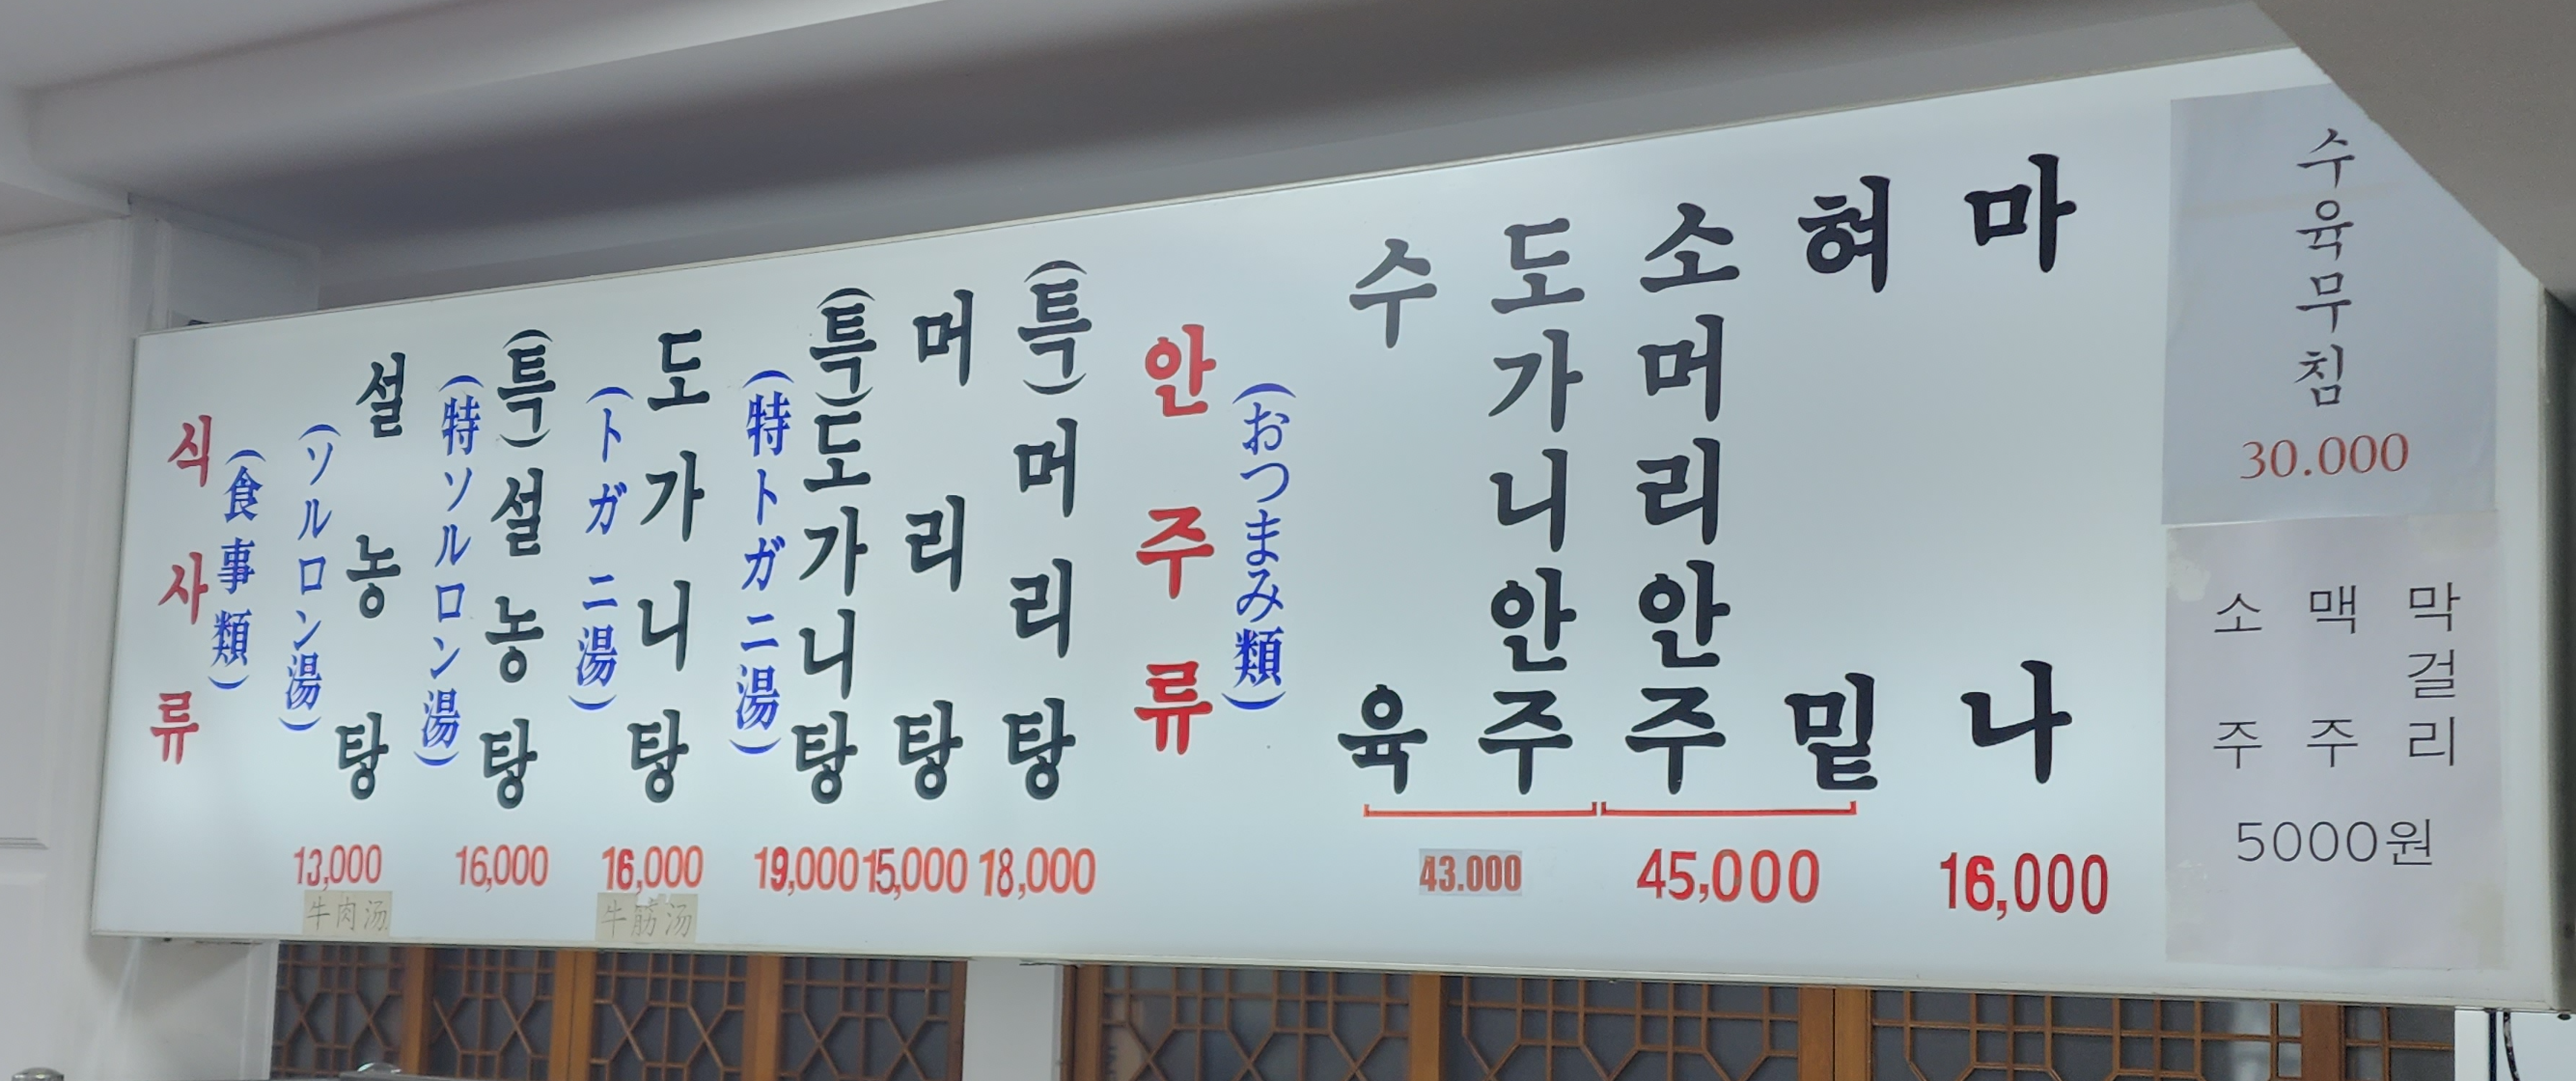 식사류
(食事類)
설농탕
(ソルロン湯)
13,000
牛肉汤
(특)설농탕
(特ソルロン湯)
16,000
도가니탕
(トガニ湯)
16,000
牛筋汤
(특)도가니탕
(特トガニ湯)
19,000
머리탕
15,000
(특)머리탕
18,000
안주류
(おつまみ類)
수육
도가니안주
43.000
소머리안주
혀밑
45,000
마나
16,000
수육무침
30.000
소주
맥주
막걸리
5000원